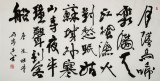 月落烏啼
霜滿天江
楓漁火
對愁眠姑
蘇城外寒
山寺夜半
鐘聲到客
船